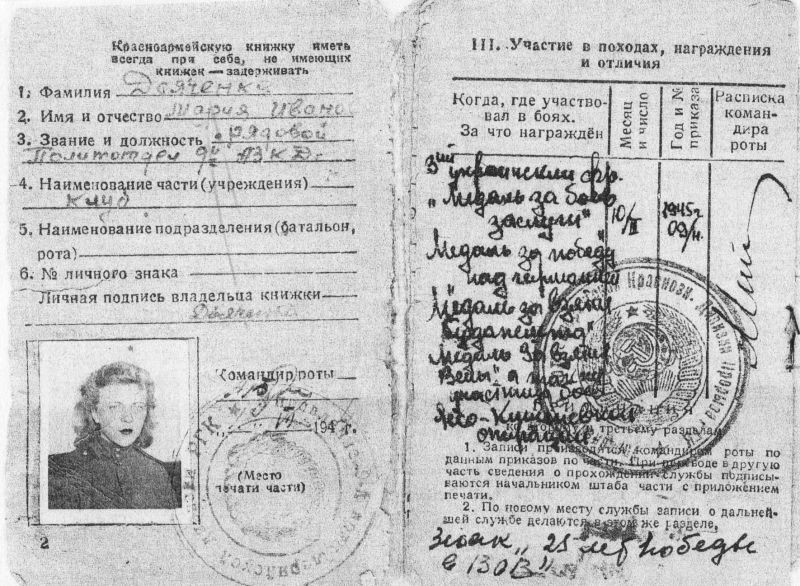 Красноармейскую книжку иметь
всегда при себе, не имеющих
книжек — задерживать
1. Фамилия Дяченко
2. Имя и отчество Мария Ивано
3. Звание и должность рядовой
Политотдел
4. Наименование части (учреждения)
клуб
5. Наименование подразделения (батальон,
рота)
6. № личного знака
Личная подпись владельца книжки
Дяченко
Командир роты
194 г.
(Место
печати части)
2
III. Участие в походах, награждения
и отличия
Когда, где участво-
вал в боях.
За что награждён
Месяц
и число
Год и №
приказа
Расписка
коман-
дира
роты
3ий украинский фр.
„Медаль за боев
заслуги"
10/III
1945г
09/н.
Медаль за победу
над германией
Медаль за взятие
Будапешта"
Медаль за взятие
Вены" а также
участник боев
Ясо-Кишиневской
операции
третьему разделам
1. Записи производятся командиром роты по
данным приказов по части. При переводе в другую
часть сведения о прохождении службы подписы-
ваются начальником штаба части с приложением
печати.
2. По новому месту службы записи о дальней-
шей службе делаются в этом же разделе,
Знак „25 лет победы
в ВОВ"